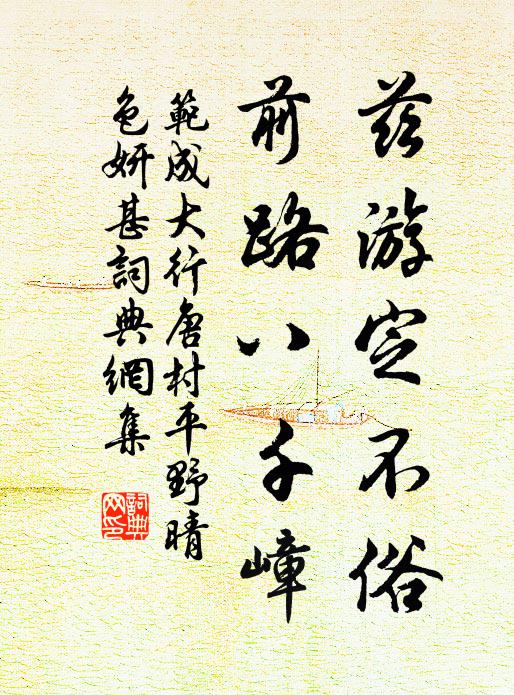 茲游定不俗
前路八千嶂
範成大行唐村平野晴
色妍甚詞典網集
詞典